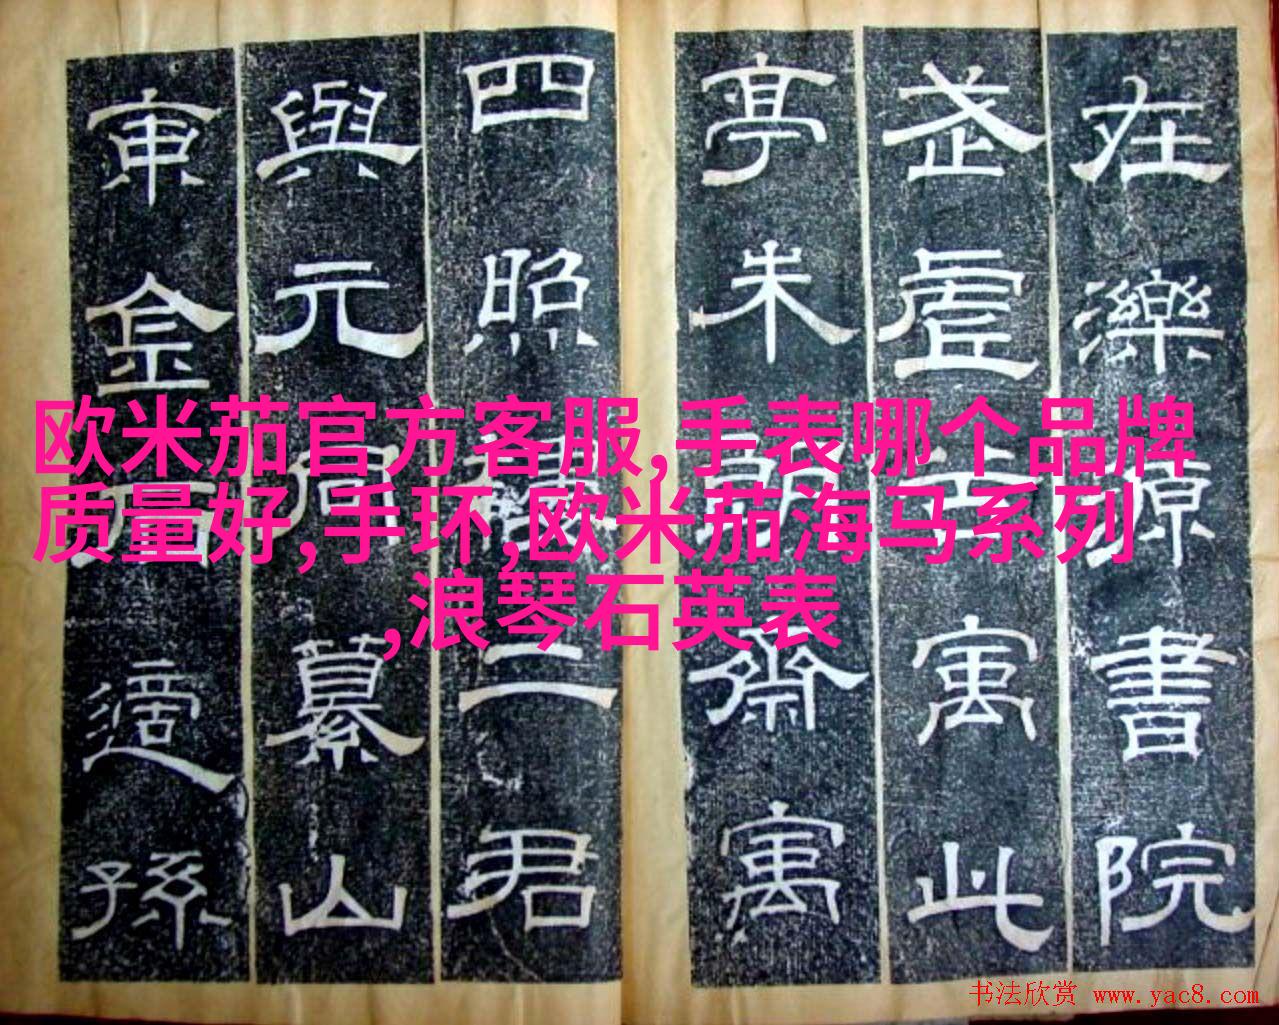 欧米茄官方客服,手表哪个品牌
质量好,手环,欧米茄海马系列
,浪琴石英表
在濼源書院
武虛寓此
亭朱朗齋寓
四照樓二君
與元同纂山
東金石適孫
书法欣赏 www.yac8.com